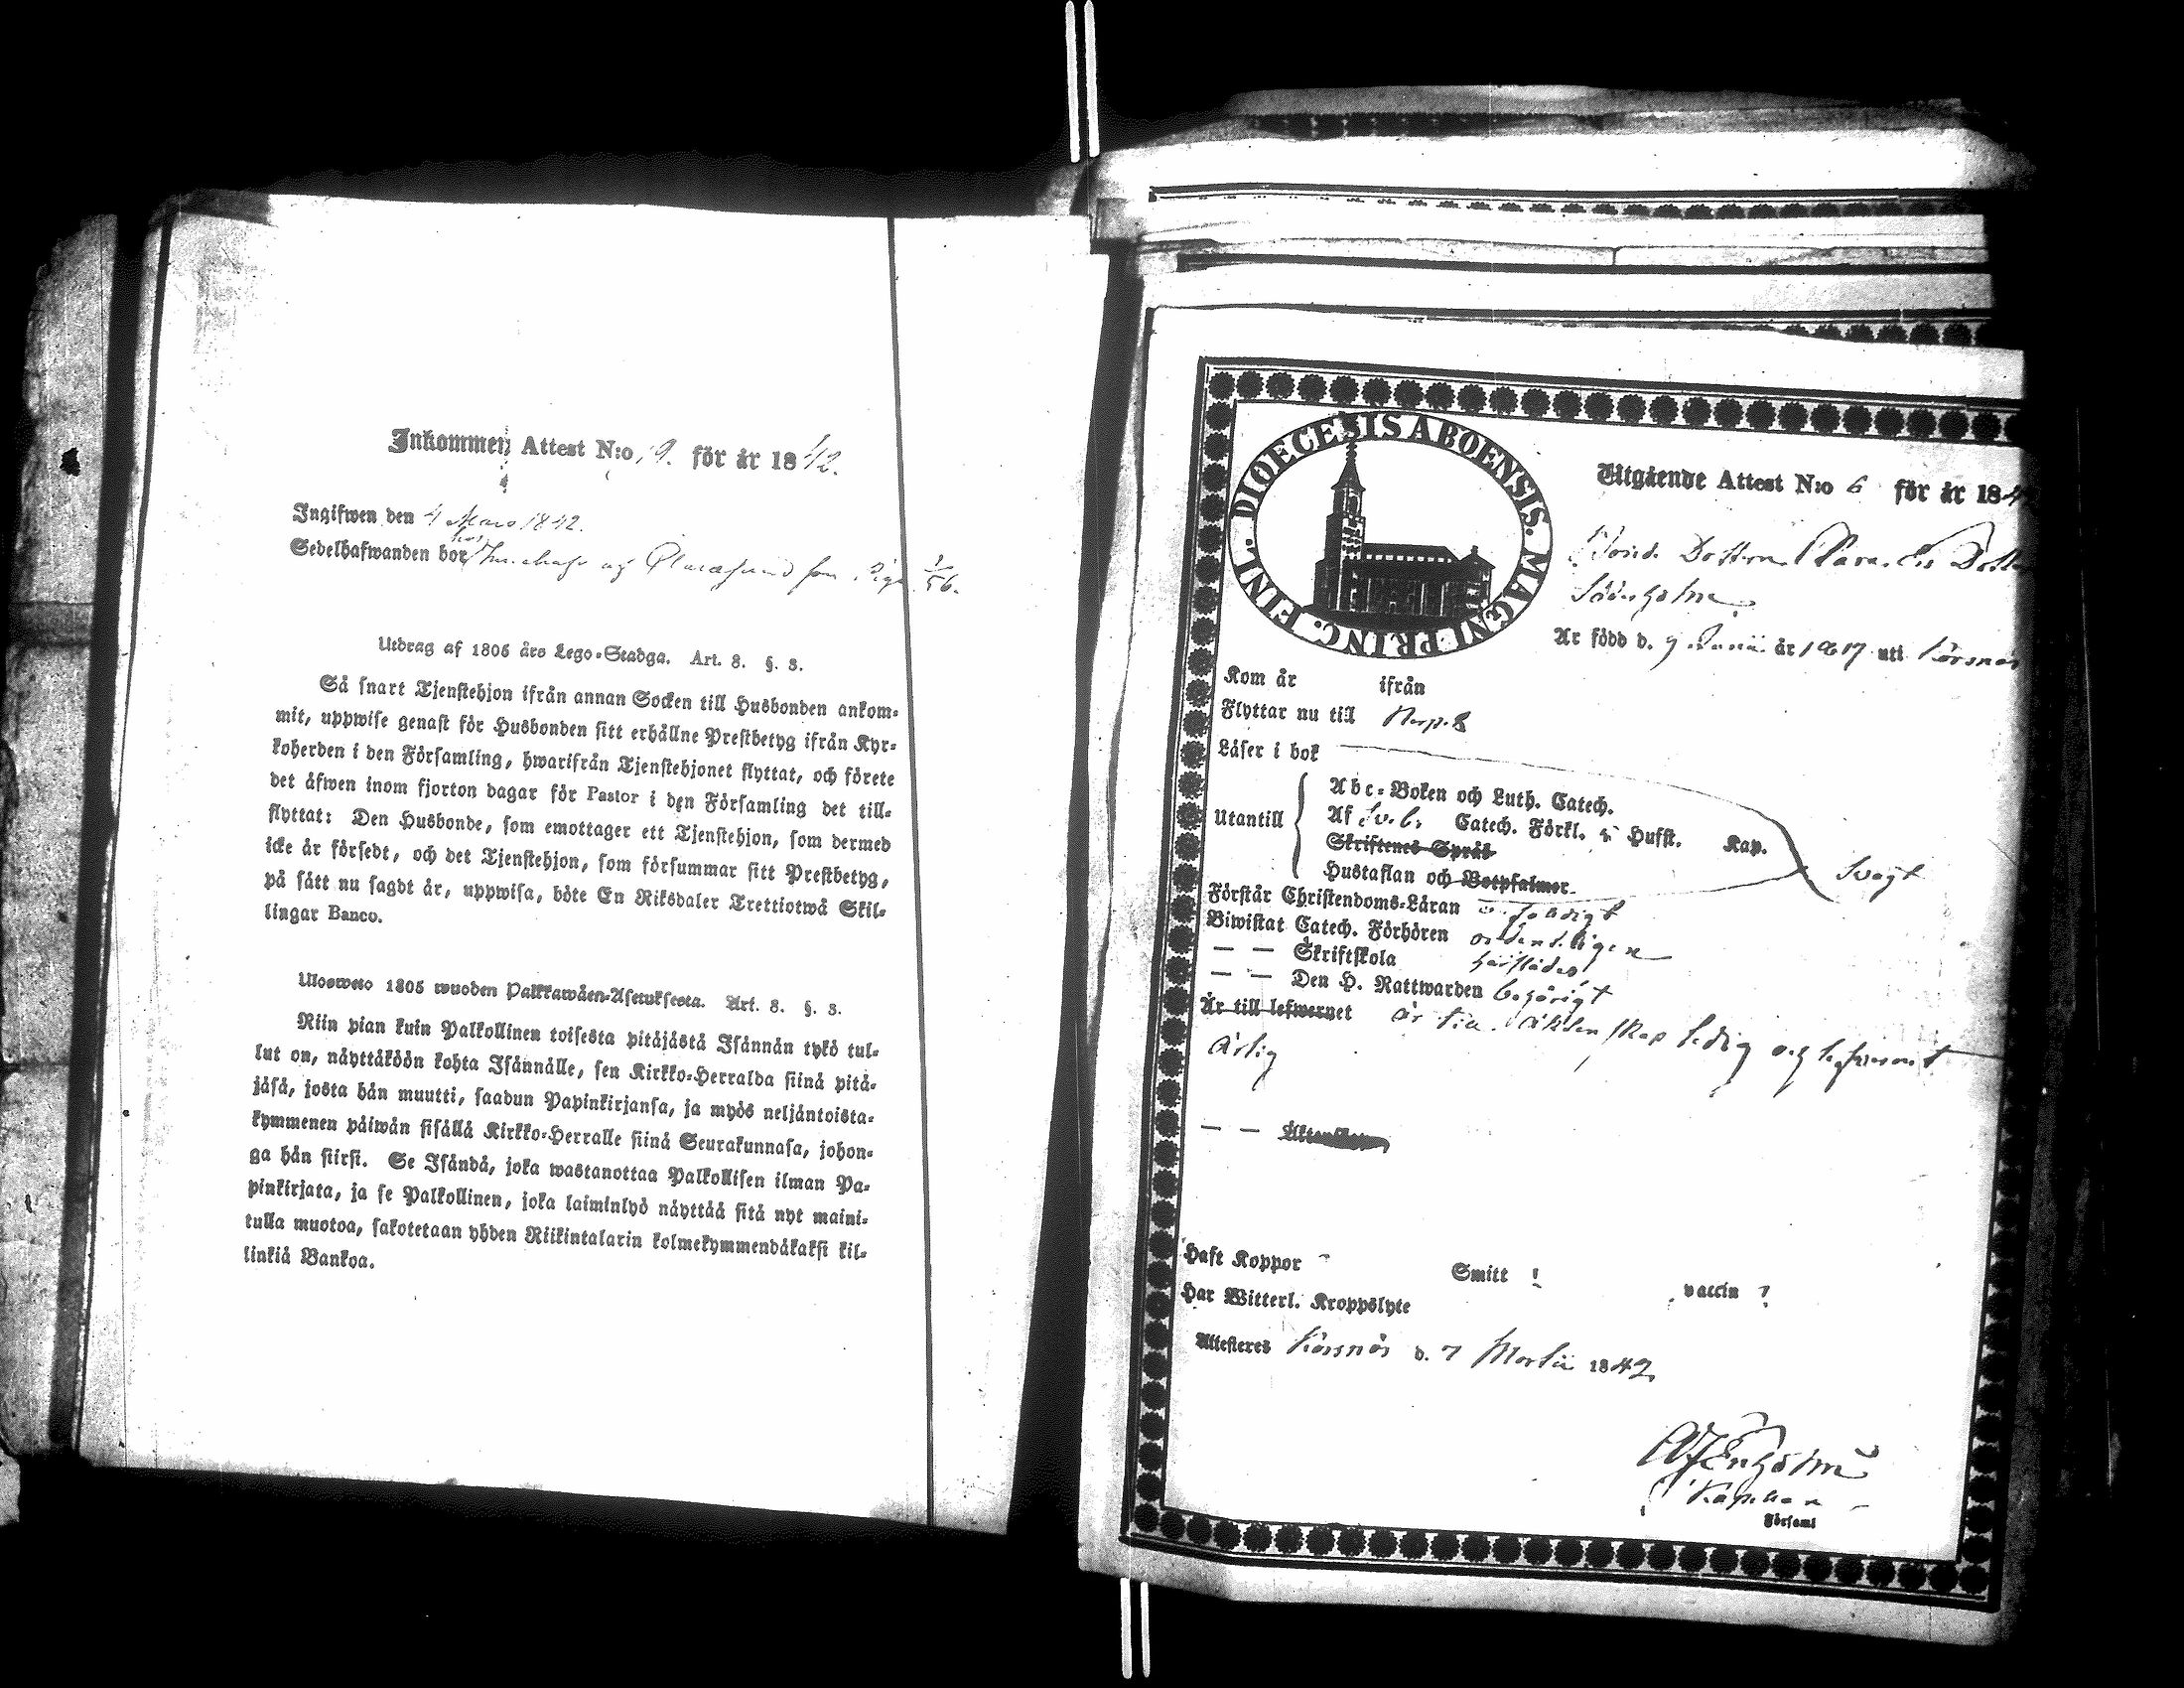 Inkommen Attest N:o 9. för år 1842.
Ingifwen den 4 Mars 1842.
Sedelhafwanden bor hos
Utdrag af 1805 års Lego-Stadga. Art. 8. §. 3.
Så snart Tjenstehjon ifrån annan Socken till Husbonden ankom-
mit, uppwise genast för Husbonden sitt erhållne Prestbetyg ifrån Kyr-
koherden i den Församling, hwarifrån Tjenstehjonet flyttat, och förete
det äfwen inom fjorton dagar för Pastor i den Församling det till-
flyttat: Den Husbonde, som emottager ett Tjenstehjon, som dermed
icke är försedt, och det Tjenstehjon, som försummar sitt Prestbetyg,
på sätt nu sagdt är, uppwisa, böte En Riksdaler Trettiotwå Skil-
lingar Banco.
Ulosweto 1805 wuoden Palkkawäen-Asetuksesta. Art. 8. §. 3.
Niin pian kuin Palkollinen toisesta pitäjästä Isännän tykö tul-
lut on, näyttäköön kohta Isännälle, sen Kirkko-Herralda siinä pitä-
jäsä, josta hän muutti, saadun Papinkirjansa, ja myös neljäntoista-
kymmenen päiwän sisällä Kirkko-Herralle siinä Seurakunnasa, johon-
ga hän siirsi. Se Isändä, joka wastanottaa Palkollisen ilman Pa-
pinkirjata, ja se Palkollinen, joka laiminlyö näyttää sitä nyt maini-
tulla muotoa, sakotetaan yhden Riikintalarin kolmekymmendäkaksi kil-
linkiä Bankoa.
DIOECESIS ABOENSIS. MAGNI PRINC. FINL.
Utgående Attest N:o 6 för år 184
Dottern
Söderholm
Är född d. 9 Junii år 1817 uti Korsnäs
Kom år ifrån
Flyttar nu till
Läser i bok
Utantill
Abc-Boken och Luth. Catech.
Af Sveb. Catech. Förkl. 5 Hufst. Kap.
Skriftenes Språk
Hustaflan och Botpsalmer.
Svagt
Förstår Christendoms-Läran
Biwistat Catech. Förhören ordentligen
— — Skriftskola
— — Den H. Nattwarden behörigt
Är till lefwernet är till äktenskap ledig och lefvernet
ärlig
— — Äktenskap
Haft Koppor Smitt ! vaccin ?
Har Witterl. Kroppslyte
Attesteres Korsnäs d. 7 Martii 1842
Enholm
Kapellan
Församl